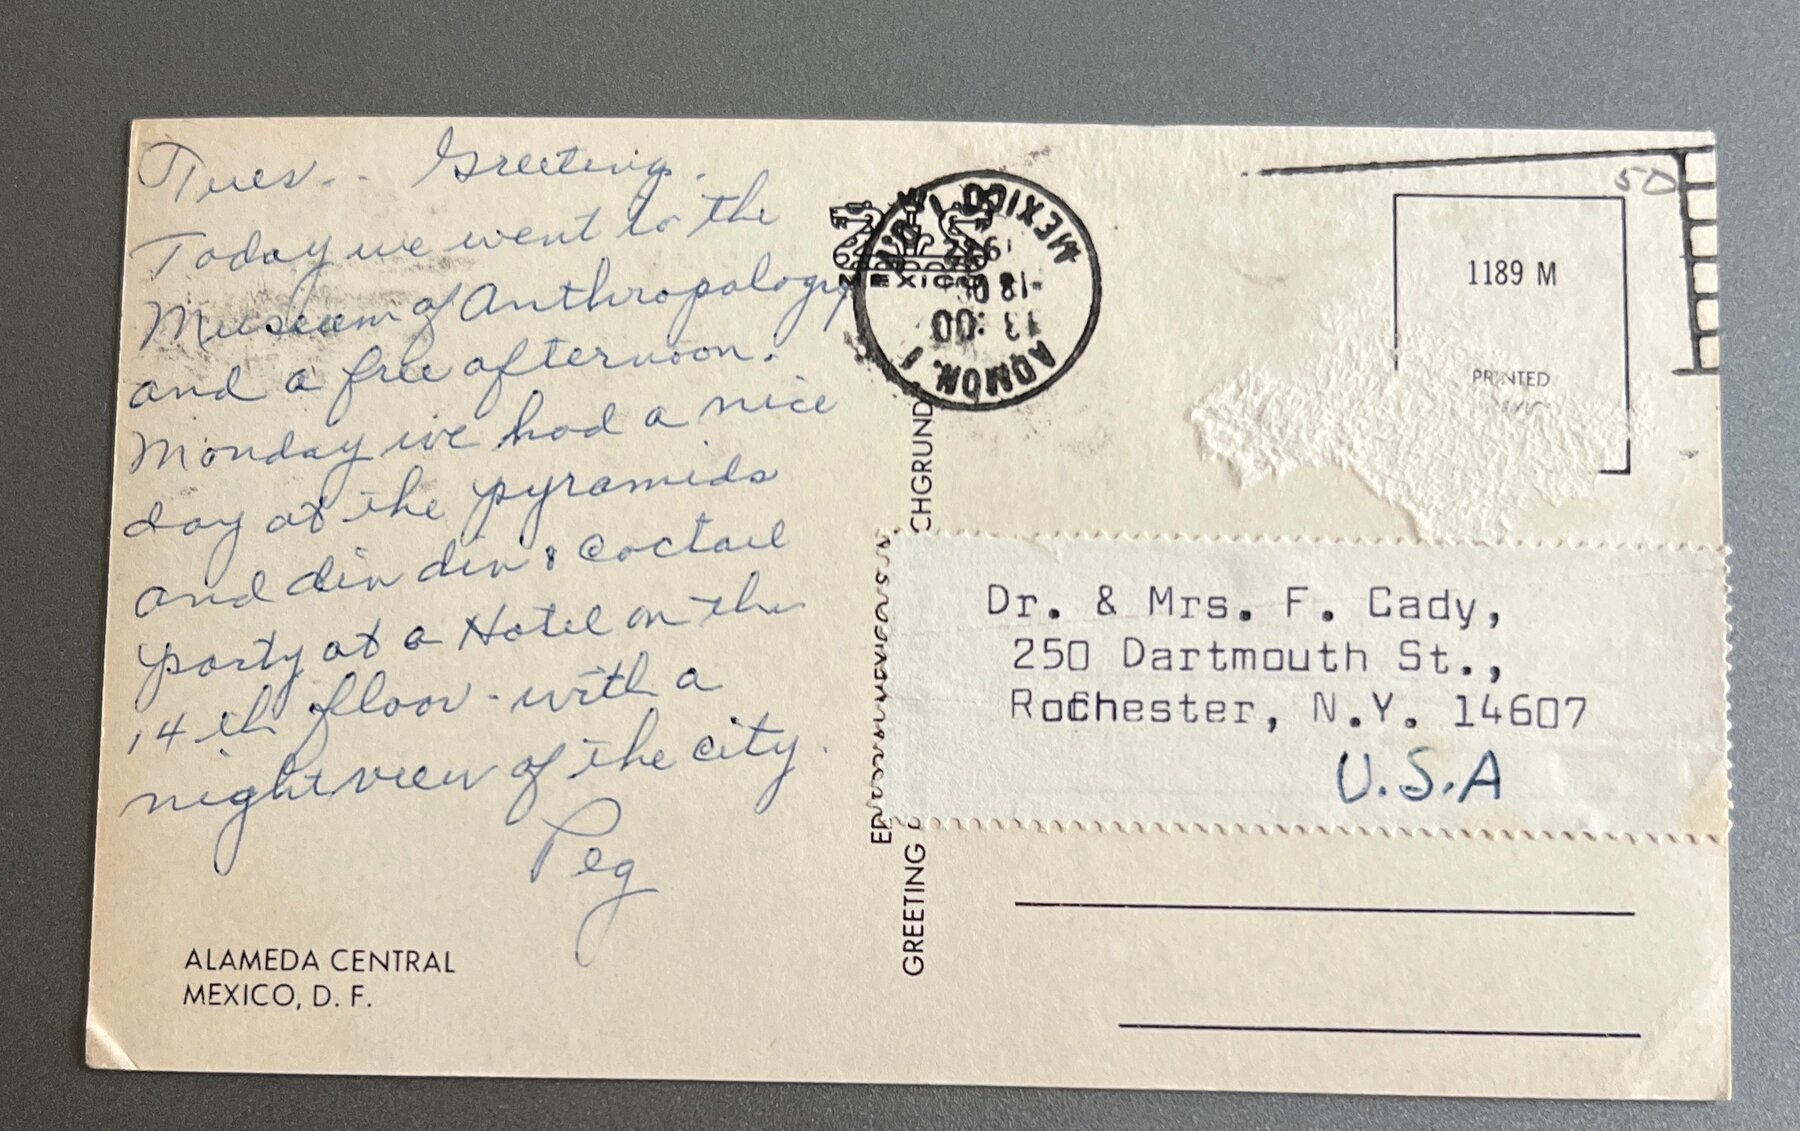 Tues. . . Greeting.
Today we went to the
Museum of Anthropology
and a free afternoon.
Monday we had a nice
day at the pyramids
and din din & coctail
party at a Hotel on the
14th floor - with a
night view of the city.
Peg
ALAMEDA CENTRAL
MEXICO, D. F.
GREETING
CHGRUND
MEXICO
MEXICO 1, D.F.
13:00
ADMON. 1
50
1189 M
PRINTED
Dr. & Mrs. F. Cady,
250 Dartmouth St.,
Rochester, N.Y. 14607
U.S.A